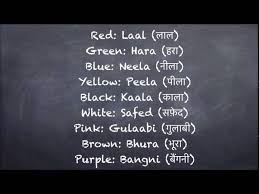 Red: Laal (लाल)
Green: Hara (हरा)
Blue: Neela (नीला)
Yellow: Peela (पीला)
Black: Kaala (काला)
White: Safed (सफ़ेद)
Pink: Gulaabi (गुलाबी)
Brown: Bhura (भूरा)
Purple: Bangni (बैंगनी)